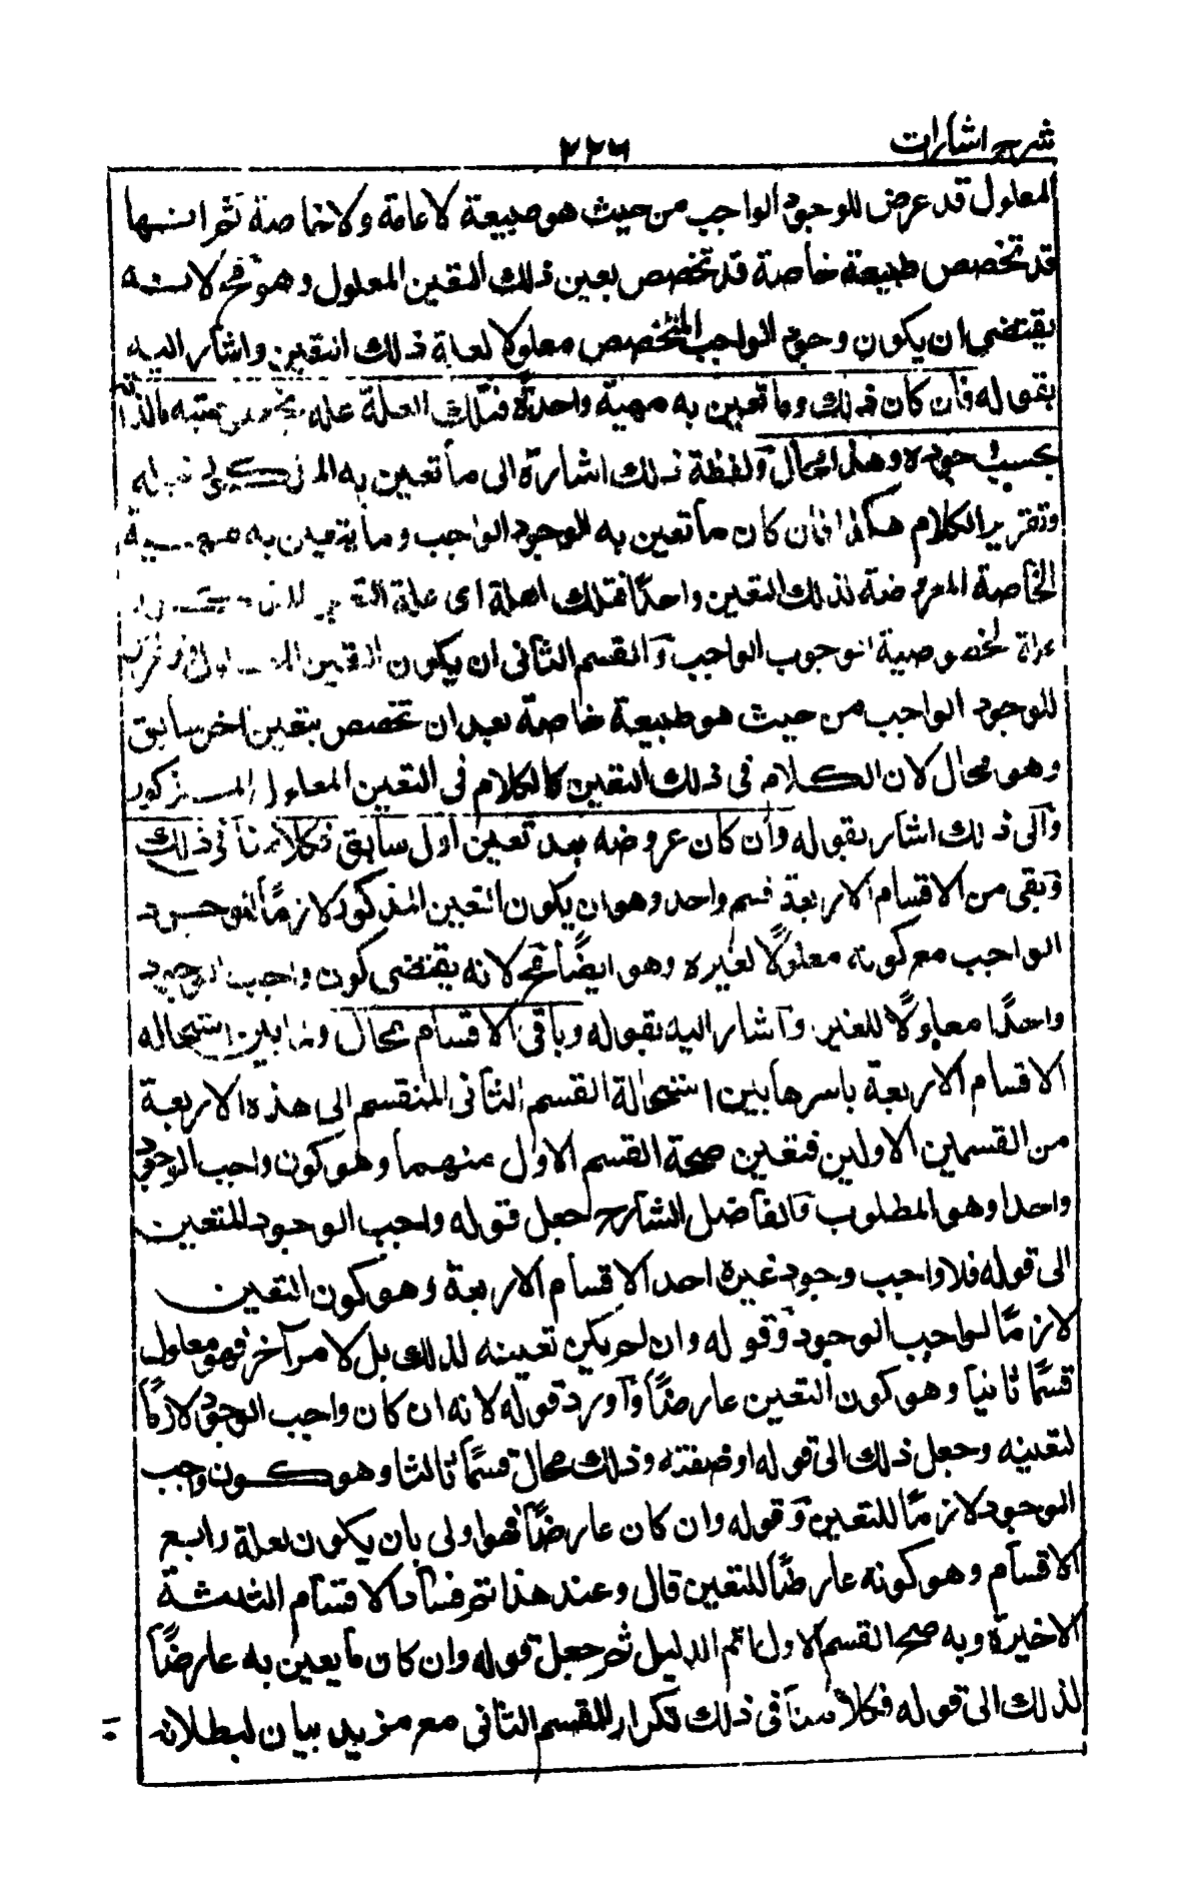 شرح اشارات
٢٢٦
المعلول قد عرض للوجود الواجب من حيث هو طبيعة لا عامة ولا خاصة ثم انها
قد تخصص طبيعة خاصة قد تخصص بعين ذلك التعين المعلول وهو مح لانه
يقتضى ان يكون وجود الواجب المتخصص معلولا لعلة ذلك التعين واشار اليه
بقوله فان كان ذلك وما تعين به مهية واحدة فتلك العلة علة لخصوصية ما لذاته
يجب وجوده وهذا محال ولفظة ذلك اشارة الى ما تعين به المذكور قبله
وتقرير الكلام هكذا فان كان ما تعين به الوجود الواجب وما يتعين به مهية
الخاصة المعروضة لذلك التعين واحدا فتلك العلة اى علة التعين
علة لخصوصية الوجوب الواجب والقسم الثانى ان يكون التعين المعلول
للوجود الواجب من حيث هو طبيعة خاصة بعد ان تخصص بتعين اخر سابق
وهو محال لان الكلام فى ذلك التعين كالكلام فى التعين المعلول المذكور
والى ذلك اشار بقوله وان كان عروضه بعد تعين اول سابق فكلامنا فى ذلك
وبقى من الاقسام الاربعة قسم واحد وهو ان يكون التعين المذكور لازما للوجود
الواجب مع كونه معلولا لغيره وهو ايضا مح لانه يقتضى كون واجب الوجود
واحدا معلولا للغير واشار اليه بقوله وباقى الاقسام محال ولما بين استحالة
الاقسام الاربعة باسرها بين استحالة القسم الثانى المنقسم الى هذه الاربعة
من القسمين الاولين فتعين صحة القسم الاول منهما وهو كون واجب الوجود
واحدا وهو المطلوب والفاضل الشارح جعل قوله واجب الوجود المتعين
الى قوله فلا واجب وجود غيره احد الاقسام الاربعة وهو كون التعين
لازما لواجب الوجود وقوله وان لم يكن تعينه لذلك بل لامر آخر فهو معلول
قسما ثانيا وهو كون التعين عارضا واورد قوله لانه ان كان واجب الوجود لازما
لتعينه وجعل ذلك الى قوله او صفته وذلك محال قسما ثالثا وهو كون واجب
الوجود لازما للتعين وقوله وان كان عارضا فهو اولى بان يكون لعلة رابع
الاقسام وهو كونه عارضا للتعين قال وعند هذا تم فساد الاقسام الثلثة
الاخيرة وبه صح القسم الاول ثم تم الدليل ثم جعل قوله وان كان ما يعين به عارضا
لذلك الى قوله فكلامنا فى ذلك تكرارا للقسم الثانى مع مزيد بيان لبطلانه